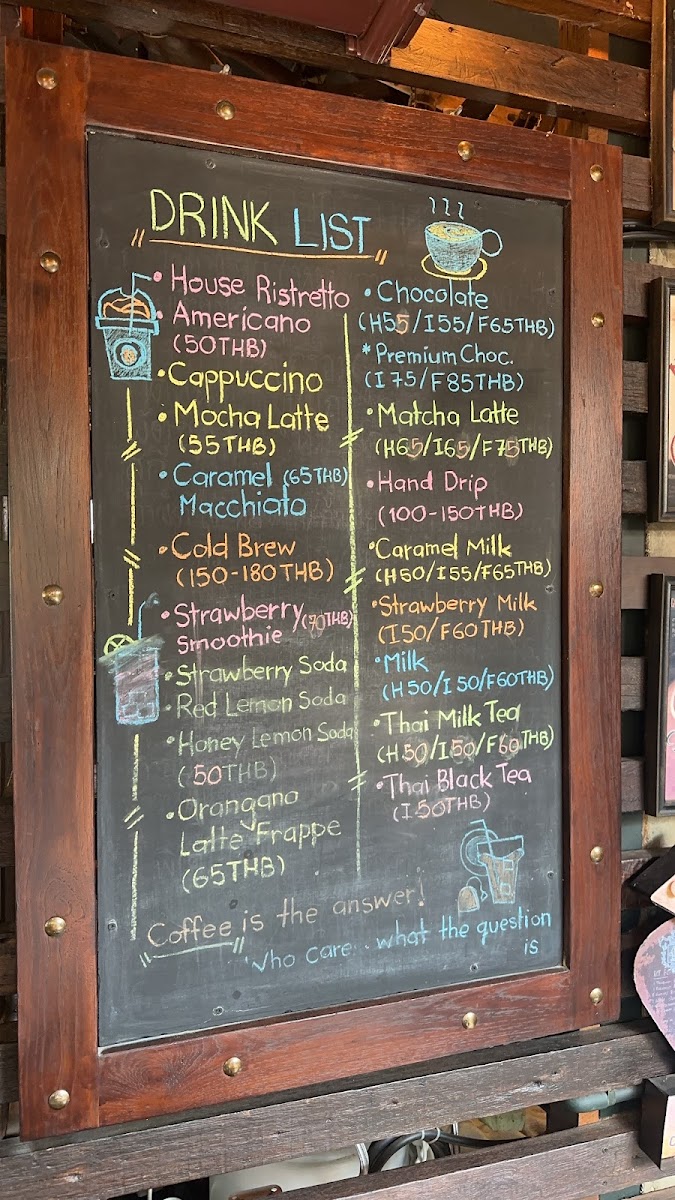 DRINK LIST
• House Ristretto
• Americano
(50THB)
• Cappuccino
• Mocha Latte
(55THB)
• Caramel (65THB)
Macchiato
• Cold Brew
(150-180THB)
• Strawberry (70THB)
Smoothie
• Strawberry Soda
• Red Lemon Soda
• Honey Lemon Soda
(50THB)
• Orangano
Latte Frappe
(65THB)
• Chocolate
(H55/I55/F65THB)
* Premium Choc.
(I75/F85THB)
• Matcha Latte
(H65/I65/F75THB)
• Hand Drip
(100-150THB)
• Caramel Milk
(H50/I55/F65THB)
• Strawberry Milk
(I50/F60THB)
• Milk
(H50/I50/F60THB)
• Thai Milk Tea
(H50/I50/F60THB)
• Thai Black Tea
(I50THB)
Coffee is the answer!
who care.. what the question
is